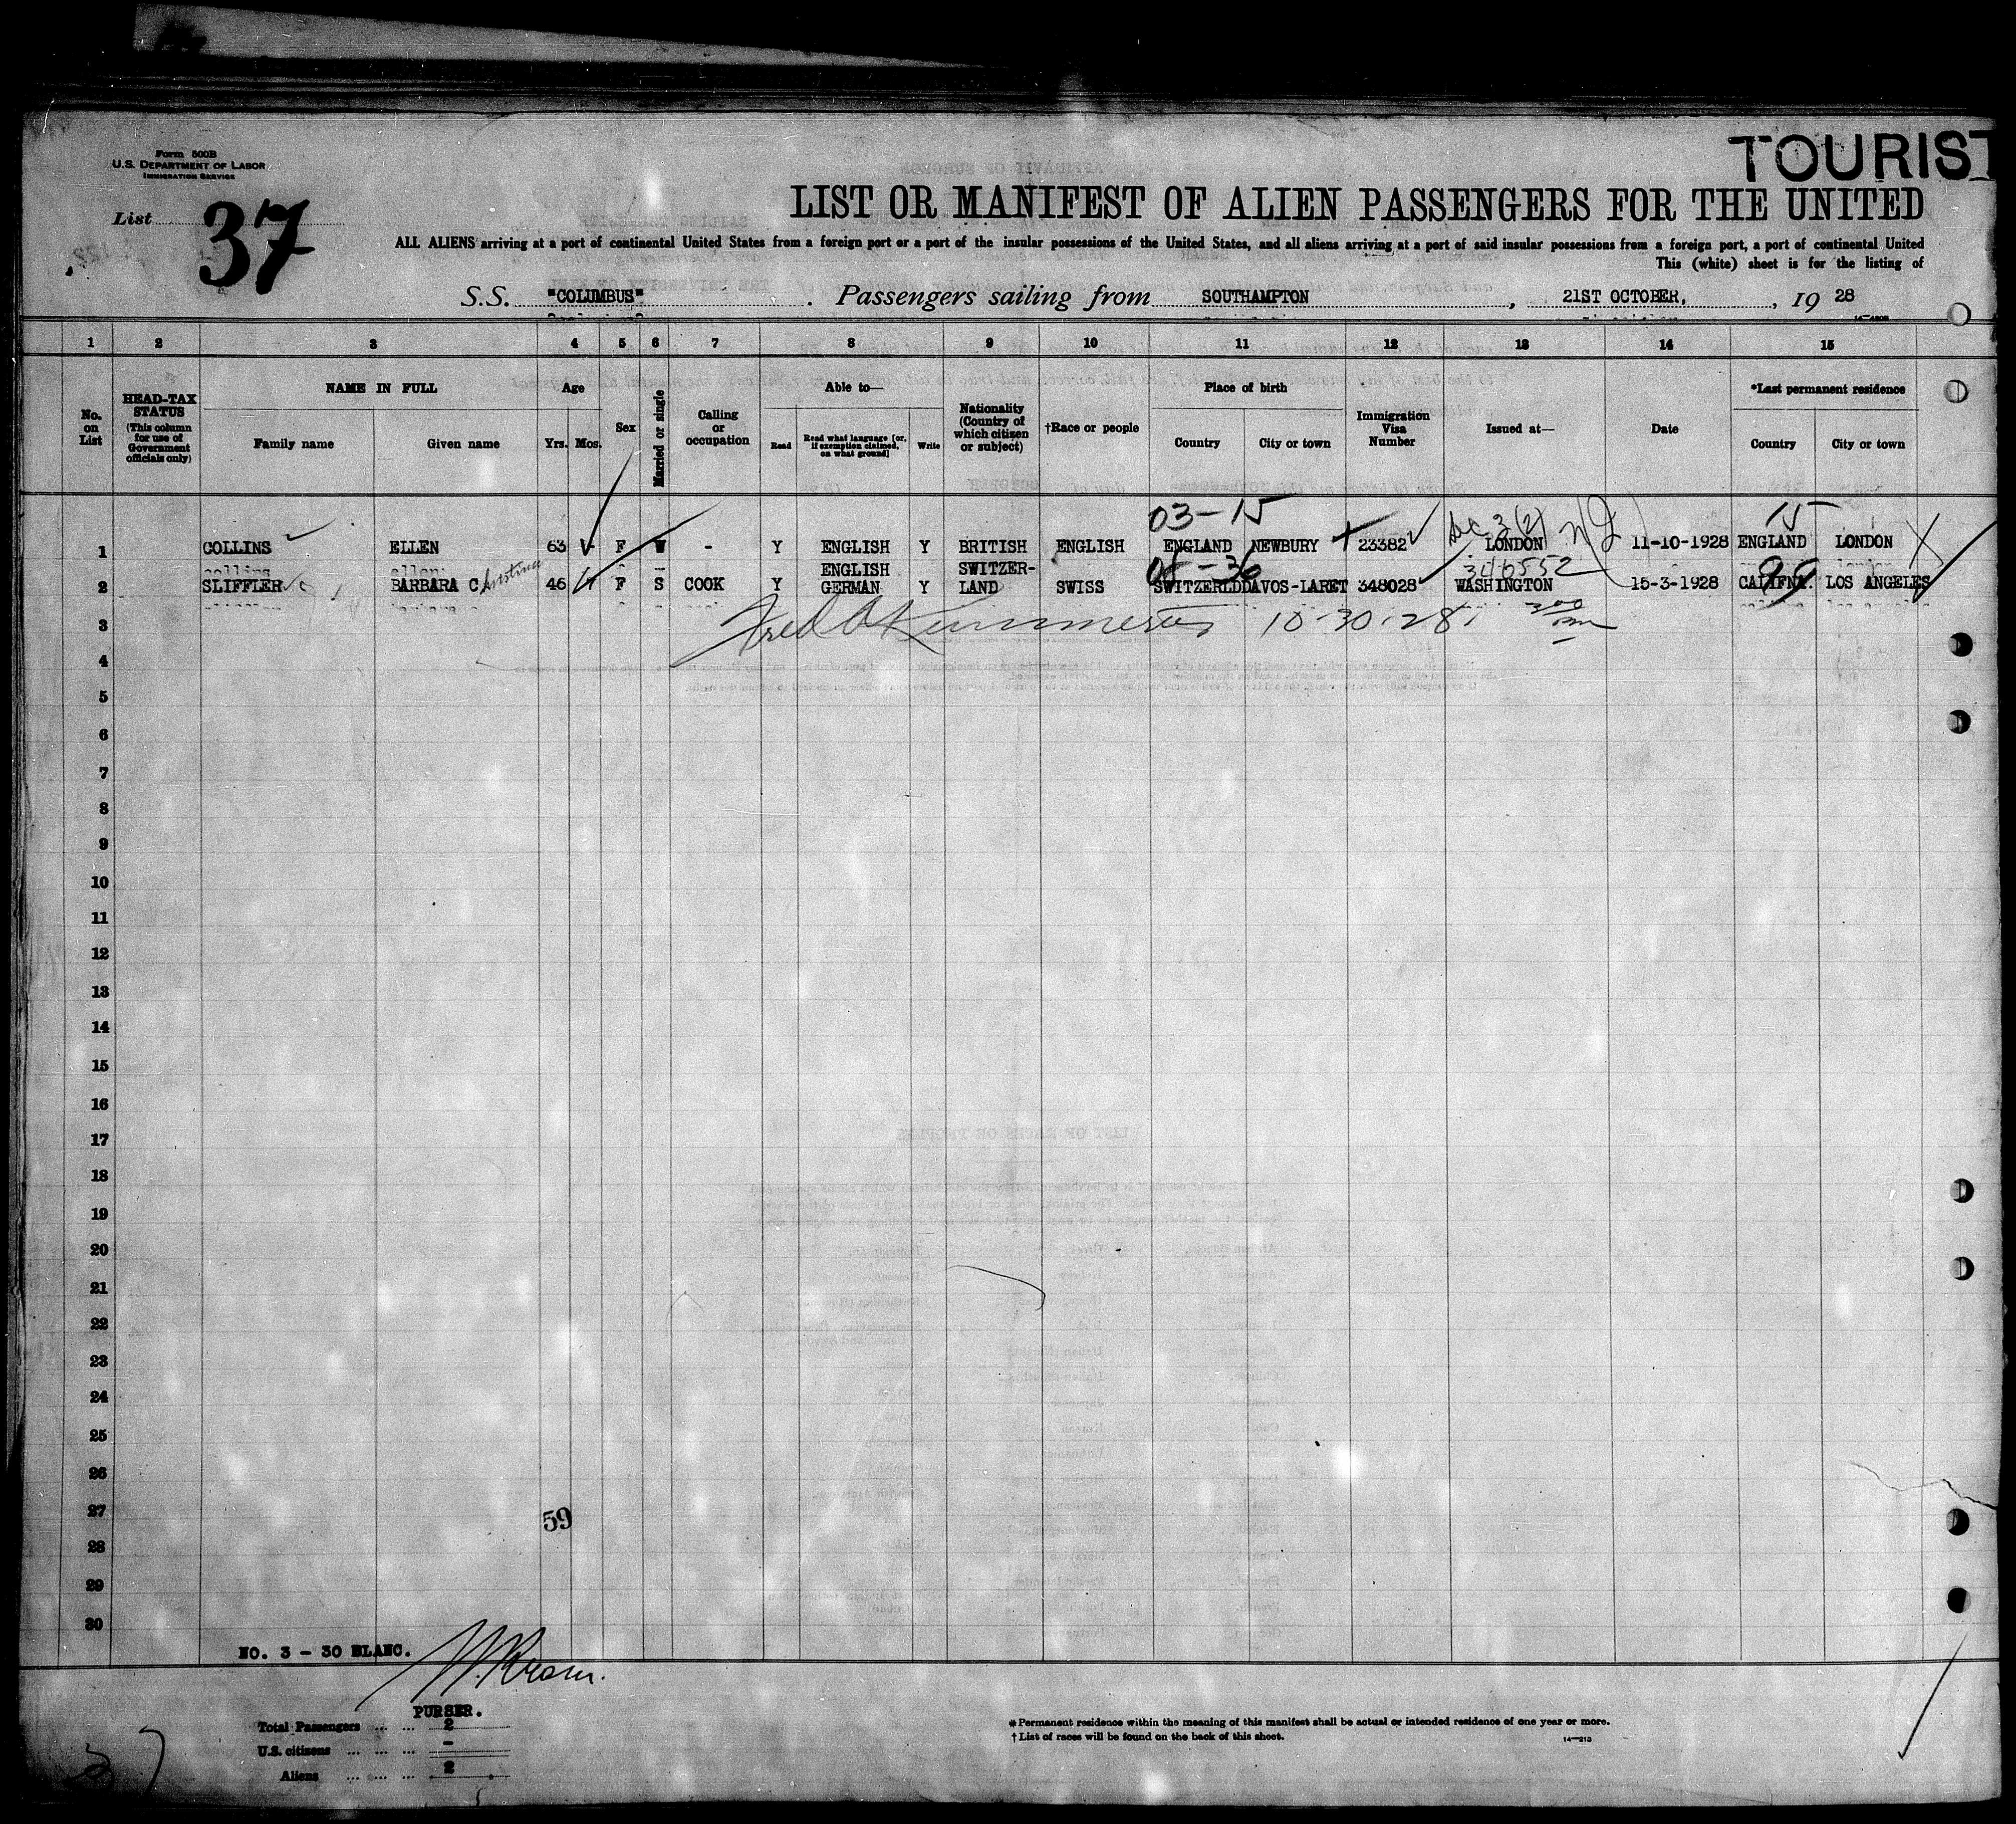 TOURIST
Form 500B
U.S. DEPARTMENT OF LABOR
IMMIGRATION SERVICE
List 37
LIST OR MANIFEST OF ALIEN PASSENGERS FOR THE UNITED
ALL ALIENS arriving at a port of continental United States from a foreign port or a port of the insular possessions of the United States, and all aliens arriving at a port of said insular possessions from a foreign port, a port of continental United
This (white) sheet is for the listing of
S.S. "COLUMBUS" . Passengers sailing from SOUTHAMPTON , 21ST OCTOBER, , 19 28
1 2 3 4 5 6 7 8 9 10 11 12 13 14 15
No. on List
HEAD-TAX STATUS (This column for use of Government officials only)
NAME IN FULL
Family name Given name
Age
Yrs. Mos.
Sex
Married or single
Calling or occupation
Able to—
Read Read what language [or, if exemption claimed, on what ground] Write
Nationality (Country of which citizen or subject)
†Race or people
Place of birth
Country City or town
Immigration Visa Number
Issued at—
Date
*Last permanent residence
Country City or town
03-15 Dec 3 (2) NJ 15
1 COLLINS ELLEN 63 F W - Y ENGLISH Y BRITISH ENGLISH ENGLAND NEWBURY 23382 LONDON 11-10-1928 ENGLAND LONDON
05-36 346552 99
2 SLIFFLER BARBARA C 46 F S COOK Y ENGLISH GERMAN Y SWITZER-LAND SWISS SWITZERLD DAVOS-LARET 348028 WASHINGTON 15-3-1928 CALIFNA. LOS ANGELES
3 10-30-28
4
5
6
7
8
9
10
11
12
13
14
15
16
17
18
19
20
21
22
23
24
25
26
27
59
28
29
30
NO. 3 - 30 BLANC.
PURSER.
Total Passengers ... ... 2
U.S. citizens ... ... ... -
Aliens ... ... ... 2
*Permanent residence within the meaning of this manifest shall be actual or intended residence of one year or more.
†List of races will be found on the back of this sheet.
14—213